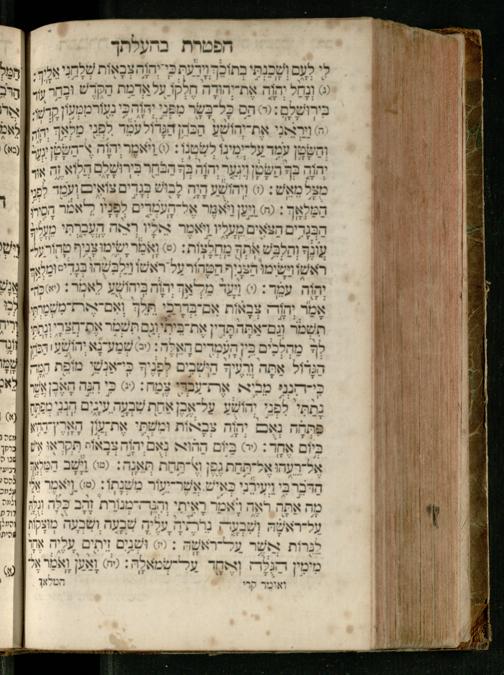 הפטרת בהעלתך
לִי לְעָם וְשָׁכַנְתִּי בְתוֹכֵךְ וְיָדַעַתְּ כִּי־יְהוָֹה צְבָאוֹת שְׁלָחַנִי אֵלָיִךְ:
(ג) וְנָחַל יְהוָֹה אֶת־יְהוּדָה חֶלְקוֹ עַל אַדְמַת הַקֹּדֶשׁ וּבָחַר עוֹד
בִּירוּשָׁלָםִ: (ד) הַס כָּל־בָּשָׂר מִפְּנֵי יְהוָֹה כִּי נֵעוֹר מִמְּעוֹן קָדְשׁוֹ:
(ה) וַיַּרְאֵנִי אֶת־יְהוֹשֻׁעַ הַכֹּהֵן הַגָּדוֹל עֹמֵד לִפְנֵי מַלְאַךְ יְהוָֹה
וְהַשָּׂטָן עֹמֵד עַל־יְמִינוֹ לְשִׂטְנוֹ: (ו) וַיֹּאמֶר יְהוָֹה אֶל־הַשָּׂטָן יִגְעַר
יְהוָֹה בְּךָ הַשָּׂטָן וְיִגְעַר יְהוָֹה בְּךָ הַבֹּחֵר בִּירוּשָׁלָםִ הֲלוֹא זֶה אוּד
מֻצָּל מֵאֵשׁ: (ז) וִיהוֹשֻׁעַ הָיָה לָבוּשׁ בְּגָדִים צוֹאִים וְעֹמֵד לִפְנֵי
הַמַּלְאָךְ: (ח) וַיַּעַן וַיֹּאמֶר אֶל־הָעֹמְדִים לְפָנָיו לֵאמֹר הָסִירוּ
הַבְּגָדִים הַצֹּאִים מֵעָלָיו וַיֹּאמֶר אֵלָיו רְאֵה הֶעֱבַרְתִּי מֵעָלֶיךָ
עֲוֹנֶךָ וְהַלְבֵּשׁ אֹתְךָ מַחֲלָצוֹת: (ט) וָאֹמַר יָשִׂימוּ צָנִיף טָהוֹר עַל־
רֹאשׁוֹ וַיָּשִׂימוּ הַצָּנִיף הַטָּהוֹר עַל־רֹאשׁוֹ וַיַּלְבִּשֻׁהוּ בְּגָדִים וּמַלְאַךְ
יְהוָֹה עֹמֵד: (י) וַיָּעַד מַלְאַךְ יְהוָֹה בִּיהוֹשֻׁעַ לֵאמֹר: (יא) כֹּה־
אָמַר יְהוָֹה צְבָאוֹת אִם־בִּדְרָכַי תֵּלֵךְ וְאִם־אֶת־מִשְׁמַרְתִּי
תִשְׁמֹר וְגַם־אַתָּה תָּדִין אֶת־בֵּיתִי וְגַם תִּשְׁמֹר אֶת־חֲצֵרָי וְנָתַתִּי
לְךָ מַהְלְכִים בֵּין הָעֹמְדִים הָאֵלֶּה: (יב) שְׁמַע־נָא יְהוֹשֻׁעַ הַכֹּהֵן
הַגָּדוֹל אַתָּה וְרֵעֶיךָ הַיֹּשְׁבִים לְפָנֶיךָ כִּי־אַנְשֵׁי מוֹפֵת הֵמָּה
כִּי־הִנְנִי מֵבִיא אֶת־עַבְדִּי צֶמַח: (יג) כִּי הִנֵּה הָאֶבֶן אֲשֶׁר
נָתַתִּי לִפְנֵי יְהוֹשֻׁעַ עַל־אֶבֶן אַחַת שִׁבְעָה עֵינָיִם הִנְנִי מְפַתֵּחַ
פִּתֻּחָהּ נְאֻם יְהוָֹה צְבָאוֹת וּמַשְׁתִּי אֶת־עֲוֹן הָאָרֶץ־הַהִיא
בְּיוֹם אֶחָד: (יד) בַּיּוֹם הַהוּא נְאֻם יְהוָֹה צְבָאוֹת תִּקְרְאוּ אִישׁ
אֶל־רֵעֵהוּ אֶל־תַּחַת גֶּפֶן וְאֶל־תַּחַת תְּאֵנָה: (טו) וַיָּשָׁב הַמַּלְאָךְ
הַדֹּבֵר בִּי וַיְעִירֵנִי כְּאִישׁ אֲשֶׁר־יֵעוֹר מִשְּׁנָתוֹ: (טז) וַיֹּאמֶר אֵלַי
מָה אַתָּה רֹאֶה וָאֹמַר רָאִיתִי וְהִנֵּה־מְנוֹרַת זָהָב כֻּלָּהּ וְגֻלָּהּ
עַל־רֹאשָׁהּ וְשִׁבְעָה נֵרֹתֶיהָ עָלֶיהָ שִׁבְעָה וְשִׁבְעָה מוּצָקוֹת
לַנֵּרוֹת אֲשֶׁר עַל־רֹאשָׁהּ: (יז) וּשְׁנַיִם זֵיתִים עָלֶיהָ אֶחָד
מִימִין הַגֻּלָּה וְאֶחָד עַל־שְׂמֹאלָהּ: (יח) וָאַעַן וָאֹמַר אֶל־
ואומר קרי
המלאך